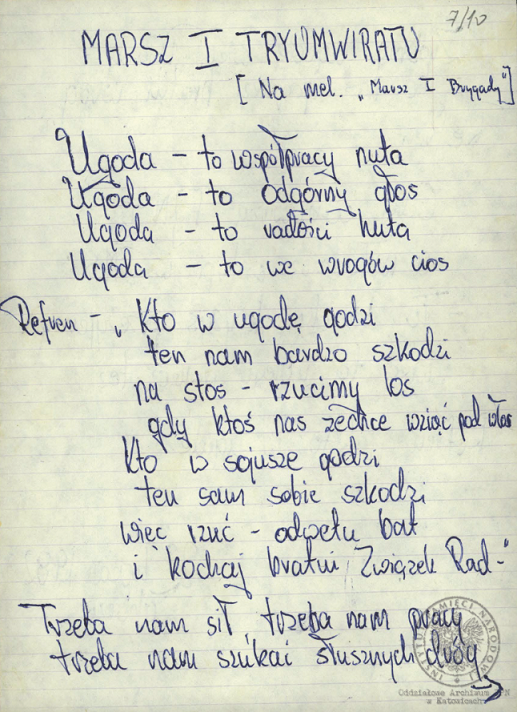 7/10
MARSZ I TRYUMWIRATU
[ Na mel. „Marsz I Brygady"]
Ugoda – to współpracy nuta
Ugoda – to odgórny głos
Ugoda – to radości huta
Ugoda – to we wrogów cios
Refren – „Kto w ugodę godzi
ten nam bardzo szkodzi
na stos – rzucimy los
gdy ktoś nas zechce wziąć pod włos
Kto w sojusze godzi
ten sam sobie szkodzi
więc rzuć – odwetu bat
i kochaj bratni Związek Rad–"
Trzeba nam sił, trzeba nam pracy
trzeba nam szukać słusznych dróg
INSTYTUT PAMIĘCI NARODOWEJ
Oddziałowe Archiwum IPN
w Katowicach